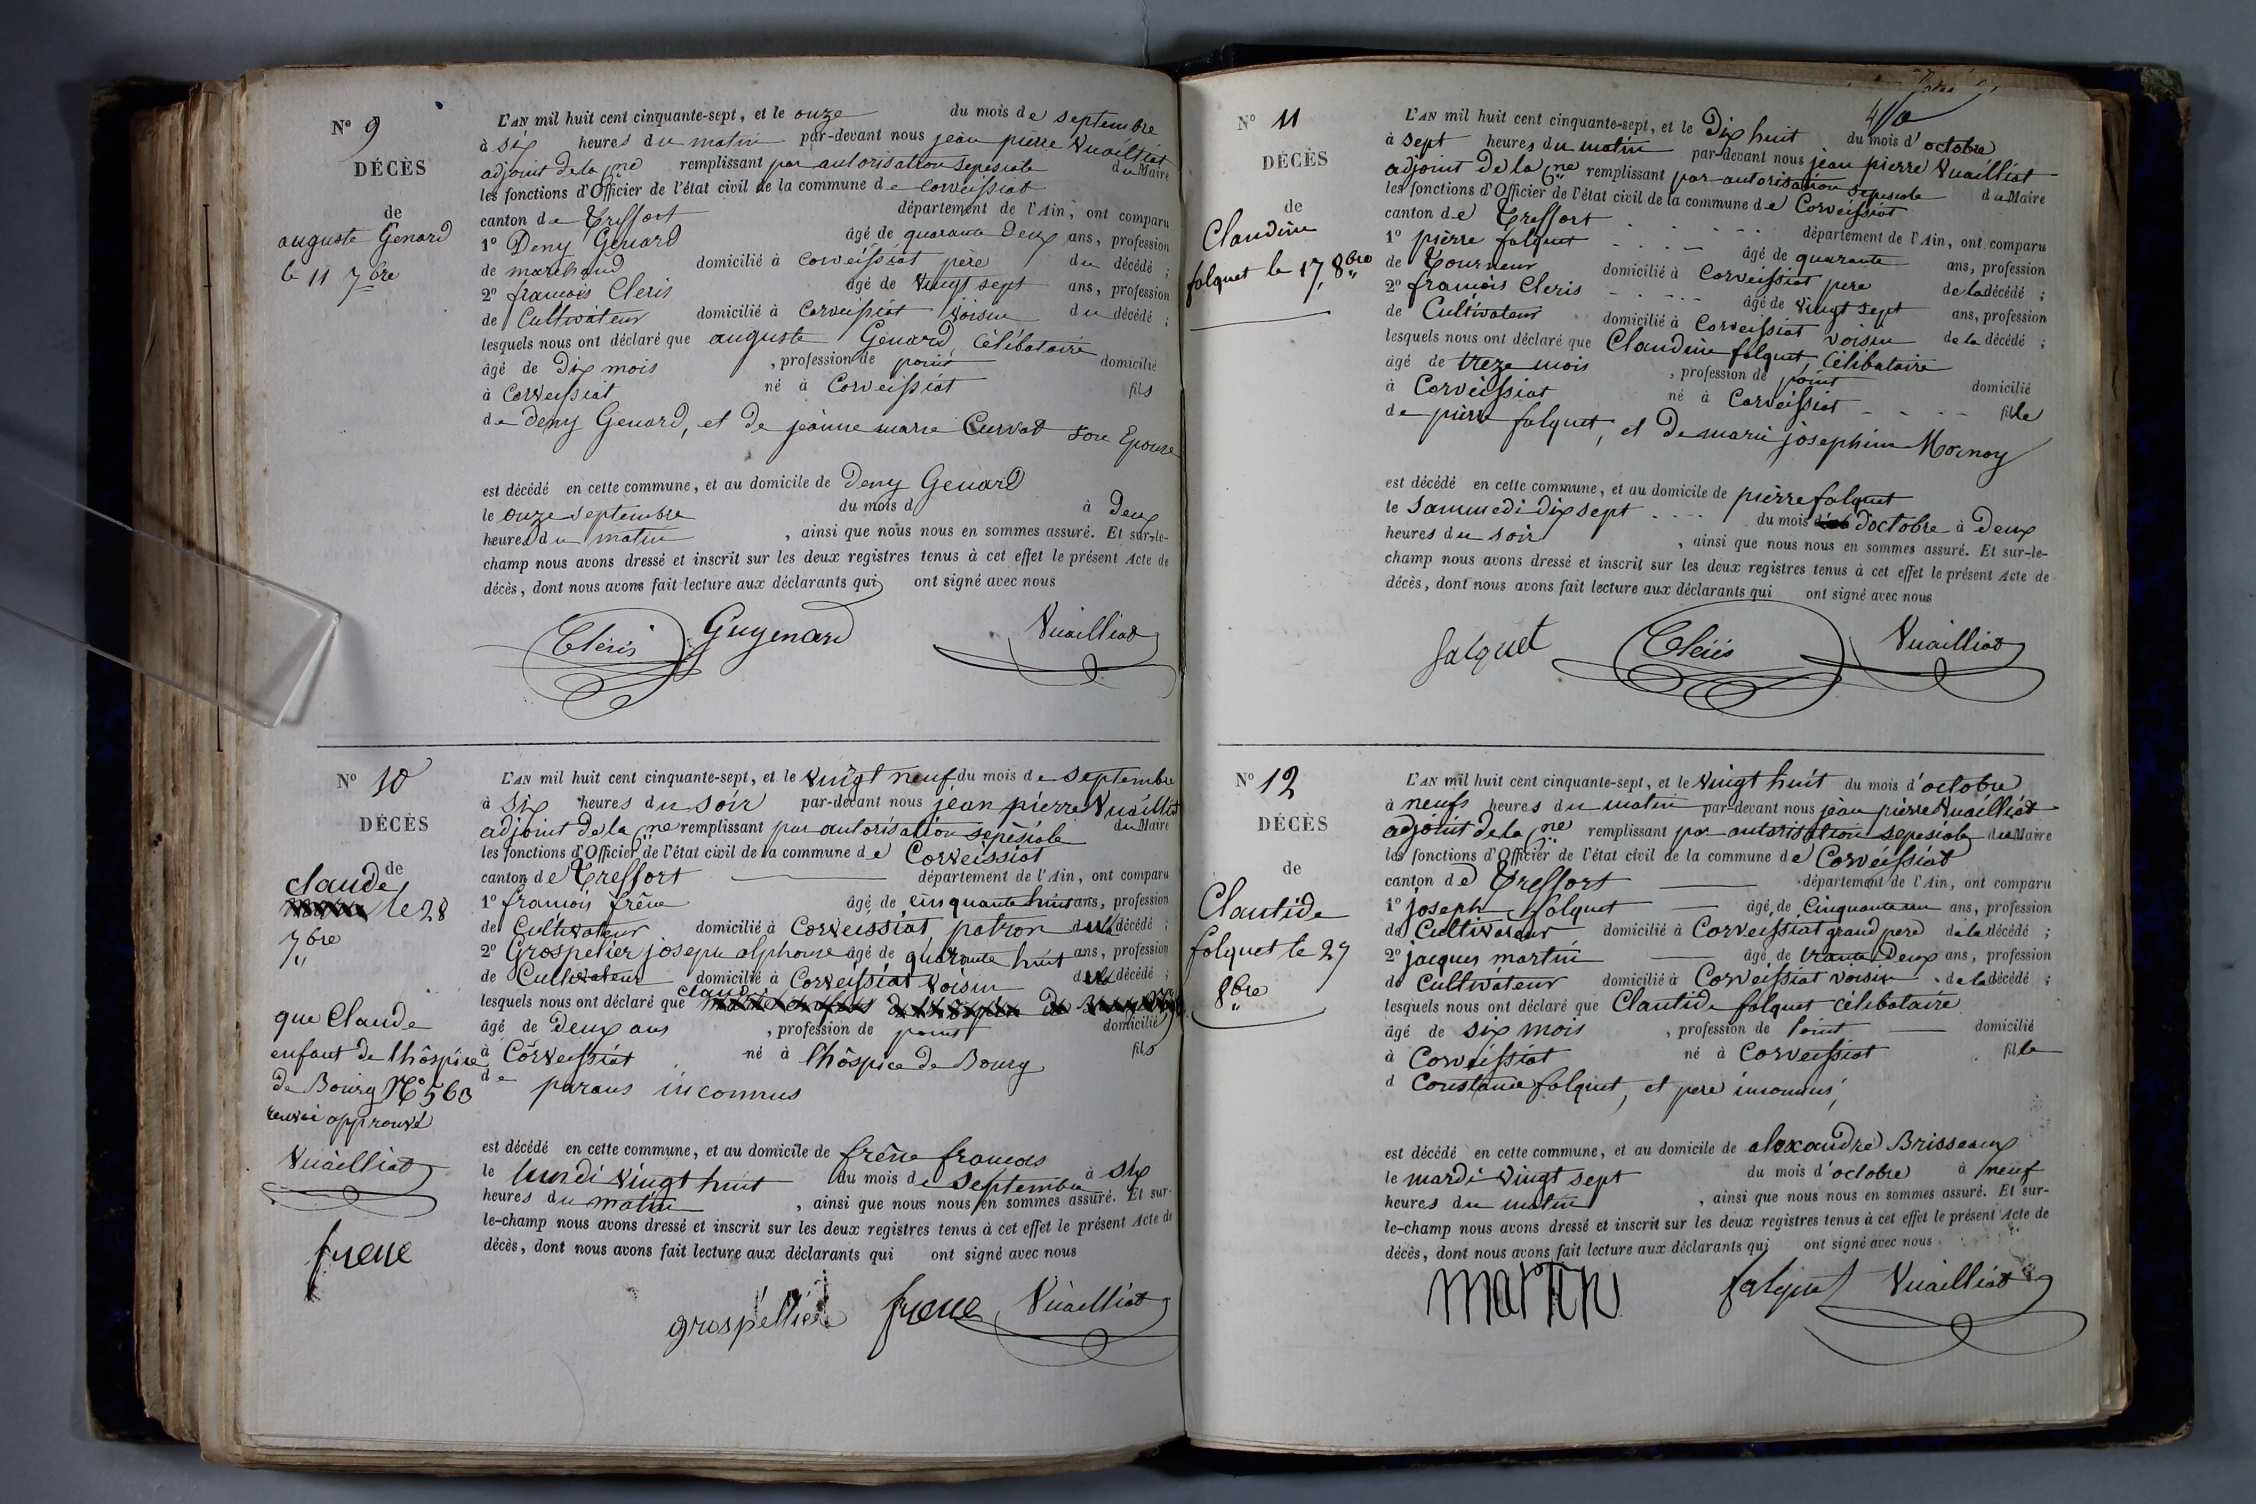 Nº 9
DÉCÈS
de
auguste Genard
le 11 7bre
L'AN mil huit cent cinquante-sept, et le onze du mois de septembre
à six heures du matin par-devant nous jean pierre Vuailliat
adjoint de la Cne remplissant par autorisation sepésiale du Maire
les fonctions d'Officier de l'état civil de la commune de Corveissiat
canton de Treffort département de l'Ain, ont comparu
1º Deny Genard âgé de quarante Deux ans, profession
de marchand domicilié à Corveissiat père du décédé ;
2º francois Cleris âgé de Vingt sept ans, profession
de Cultivateur domicilié à Corveissiat Voisin du décédé ;
lesquels nous ont déclaré que auguste Genard, Célébataire
âgé de Dix mois , profession de point domicilié
à Corveissiat né à Corveissiat fils
de Deny Genard, et de jeanne marie Curvat son Epouse
est décédé en cette commune, et au domicile de Deny Genard
le onze septembre du mois d à Deux
heures du matin , ainsi que nous nous en sommes assuré. Et sur-le-
champ nous avons dressé et inscrit sur les deux registres tenus à cet effet le présent Acte de
décès, dont nous avons fait lecture aux déclarants qui ont signé avec nous
Cléris Guyenard Vuailliat
Nº 10
DÉCÈS
de
claude
le 28
7bre
que Claude
enfant de lhôspice
de Bourg Nº 560
renvoi approuvé
Vuailliat
frene
L'AN mil huit cent cinquante-sept, et le Vingt neuf du mois de septembre
à six heures du soir par-devant nous jean pierre Vuailliat
adjoint de la Cne remplissant par autorisation sepésiale du Maire
les fonctions d'Officier de l'état civil de la commune de Corveissiat
canton de Treffort département de l'Ain, ont comparu
1º francois frêne âgé de cinquante huit ans, profession
de Cultivateur domicilié à Corveissiat patron du décédé ;
2º Grospelier joseph alphonse âgé de quarante huit ans, profession
de Cultivateur domicilié à Corveissiat Voisin du décédé ;
lesquels nous ont déclaré que claude
âgé de Deux ans , profession de point domicilié
à Corveissiat né à lhôspice de Bourg fils
de parans inconnus
est décédé en cette commune, et au domicile de frêne francois
le lundi Vingt huit du mois de septembre à six
heures du matin , ainsi que nous nous en sommes assuré. Et sur-
le-champ nous avons dressé et inscrit sur les deux registres tenus à cet effet le présent Acte de
décès, dont nous avons fait lecture aux déclarants qui ont signé avec nous
grospellier frene Vuailliat
Nº 11
DÉCÈS
de
Claudine
folquet le 17, 8bre
L'AN mil huit cent cinquante-sept, et le Dix huit du mois d'octobre
à sept heures du matin par-devant nous jean pierre Vuailliat
adjoint de la Cne remplissant par autorisation sepésiale du Maire
les fonctions d'Officier de l'état civil de la commune de Corveissiat
canton de Treffort département de l'Ain, ont comparu
1º pierre folquet âgé de quarante ans, profession
de Tourneur domicilié à Corveissiat pere de la décédé ;
2º francois Cleris âgé de Vingt sept ans, profession
de Cultivateur domicilié à Corveissiat Voisin de la décédé ;
lesquels nous ont déclaré que Claudine folquet, Célibataire
âgé de treze mois , profession de point domicilié
à Corveissiat né à Corveissiat fille
de pierre folquet, et De marie josephine Mornay
est décédé en cette commune, et au domicile de pierre folquet
le sammedi dix sept du mois d'octobre à Deux
heures du soir , ainsi que nous nous en sommes assuré. Et sur-le-
champ nous avons dressé et inscrit sur les deux registres tenus à cet effet le présent Acte de
décès, dont nous avons fait lecture aux déclarants qui ont signé avec nous
falquet Cléris Vuailliat
Nº 12
DÉCÈS
de
Clautide
folquet le 27
8bre
L'AN mil huit cent cinquante-sept, et le Vingt huit du mois d'octobre
à neufs heures du matin par-devant nous jean pierre Vuailliat
adjoint de la Cne remplissant par autorisation sepesiale du Maire
les fonctions d'Officier de l'état civil de la commune de Corveissiat
canton de Treffort département de l'Ain, ont comparu
1º joseph folquet âgé de Cinquante un ans, profession
de Cultivateur domicilié à Corveissiat grand pere de la décédé ;
2º jacques martin âgé de trante Deux ans, profession
de Cultivateur domicilié à Corveissiat Voisin de la décédé ;
lesquels nous ont déclaré que Clautide folquet célibataire
âgé de six mois , profession de point domicilié
à Corveissiat né à Corveissiat fille
d Constance folquet, et pere inconnus,
est décédé en cette commune, et au domicile de alexandre Brisseaux
le mardi Vingt sept du mois d'octobre à neuf
heures du matin , ainsi que nous nous en sommes assuré. Et sur-
le-champ nous avons dressé et inscrit sur les deux registres tenus à cet effet le présent Acte de
décès, dont nous avons fait lecture aux déclarants qui ont signé avec nous
martin falquet Vuailliat